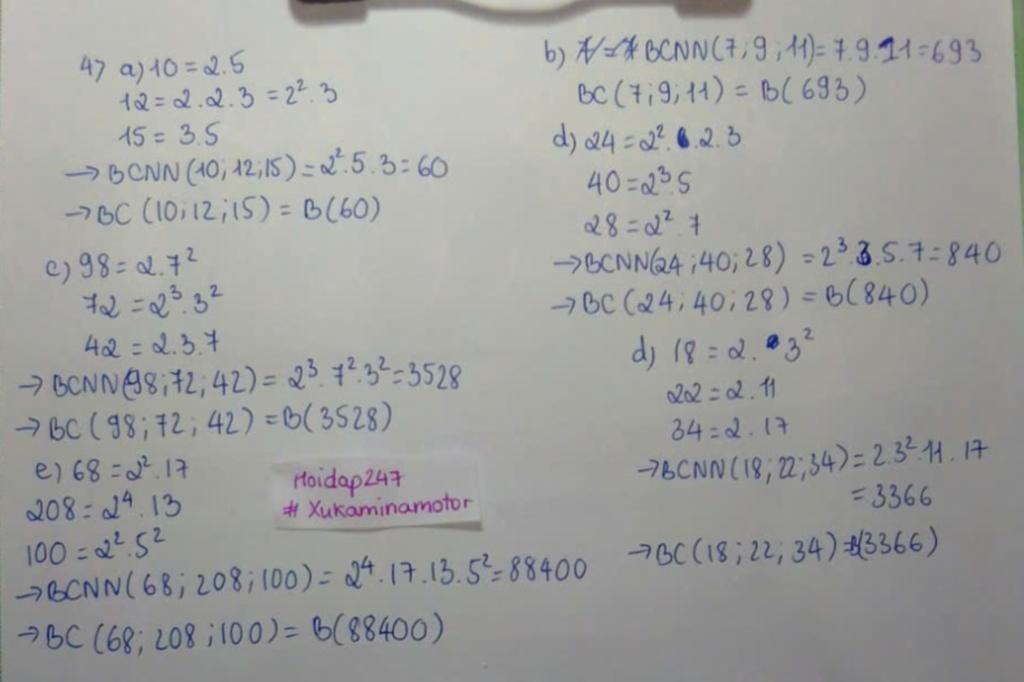 4) a) 10 = 2.5
12 = 2.2.3 = 2².3
15 = 3.5
→ BCNN(10;12;15) = 2².5.3 = 60
→ BC(10;12;15) = B(60)
c) 98 = 2.7²
72 = 2³.3²
42 = 2.3.7
→ BCNN(98;72;42) = 2³.7².3² = 3528
→ BC(98;72;42) = B(3528)
e) 68 = 2².17
208 = 2⁴.13
100 = 2².5²
→ BCNN(68;208;100) = 2⁴.17.13.5² = 88400
→ BC(68;208;100) = B(88400)
Hoidap247
# Xukaminamotor
b) BCNN(7;9;11) = 7.9.11 = 693
BC(7;9;11) = B(693)
d) 24 = 2².2.3
40 = 2³.5
28 = 2².7
→ BCNN(24;40;28) = 2³.3.5.7 = 840
→ BC(24;40;28) = B(840)
d) 18 = 2.3²
22 = 2.11
34 = 2.17
→ BCNN(18;22;34) = 2.3².11.17
= 3366
→ BC(18;22;34) = B(3366)